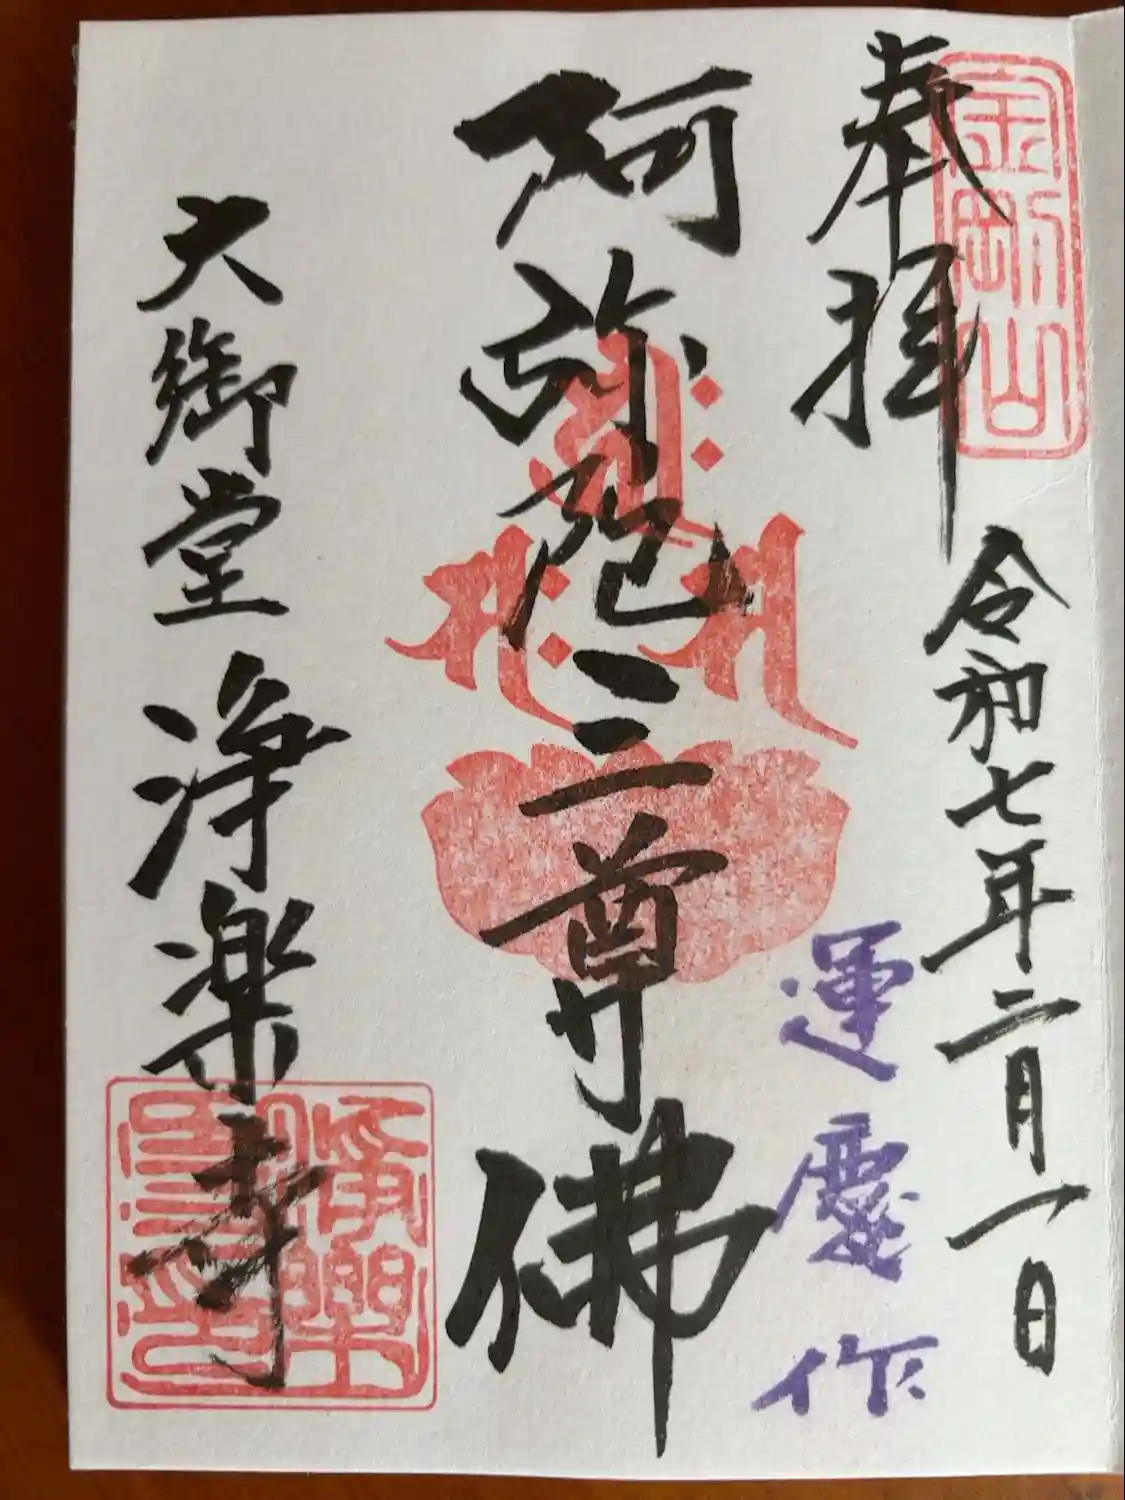 奉拝
金剛山
令和七年二月一日
運慶作
阿弥陀三尊佛
大御堂 浄楽寺